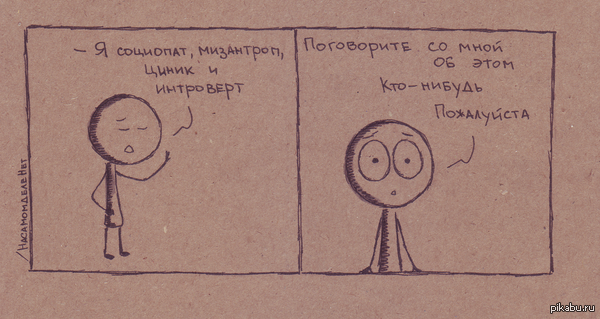 - Я социопат, мизантроп,
циник и
интроверт
Поговорите со мной
об этом
Кто-нибудь
Пожалуйста
/НасамомделеНет
pikabu.ru